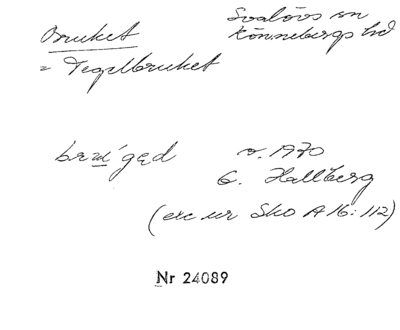 Bruket
Svalövs sn
Rönnebergs hd
= Tegelbruket
v. 1970
G. Hallberg
(exc ur Sko A 16:112)
Nr 24089